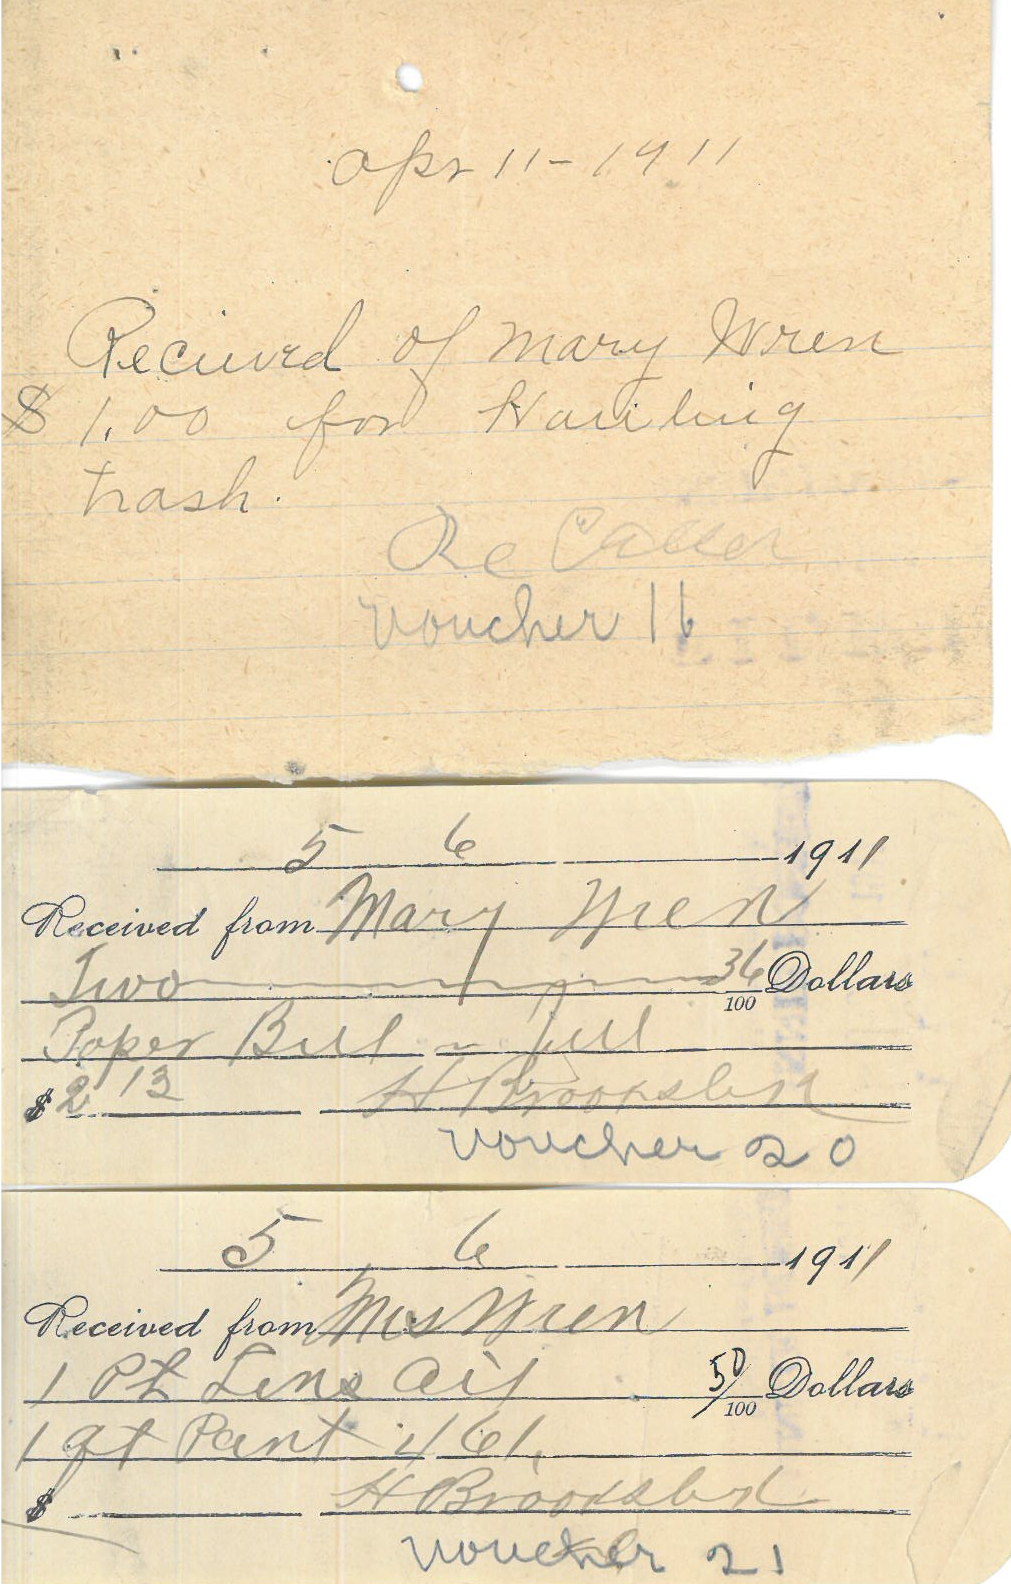 Apr 11-1911
Recieved of Mary Wren
$1.00 for Hauling
trash.
Voucher 16
5 6 1911
Received from Mary Wren
Two 36/100 Dollars
Paper Bill ~ full
$2 13 H Brooks
Voucher 20
5 6 1911
Received from Mrs Wren
1 Pt Lins Oil 50/100 Dollars
1 qt Pant 461.
$ H Brooks
Voucher 21